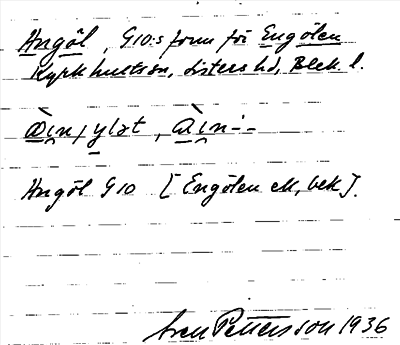 Angöl, G10:s form för Engölen
Kyrkhultssn, Listers hd, Blek. l.
Angöl G10 [Engölen ek, bek].
Sven Pettersson 1936